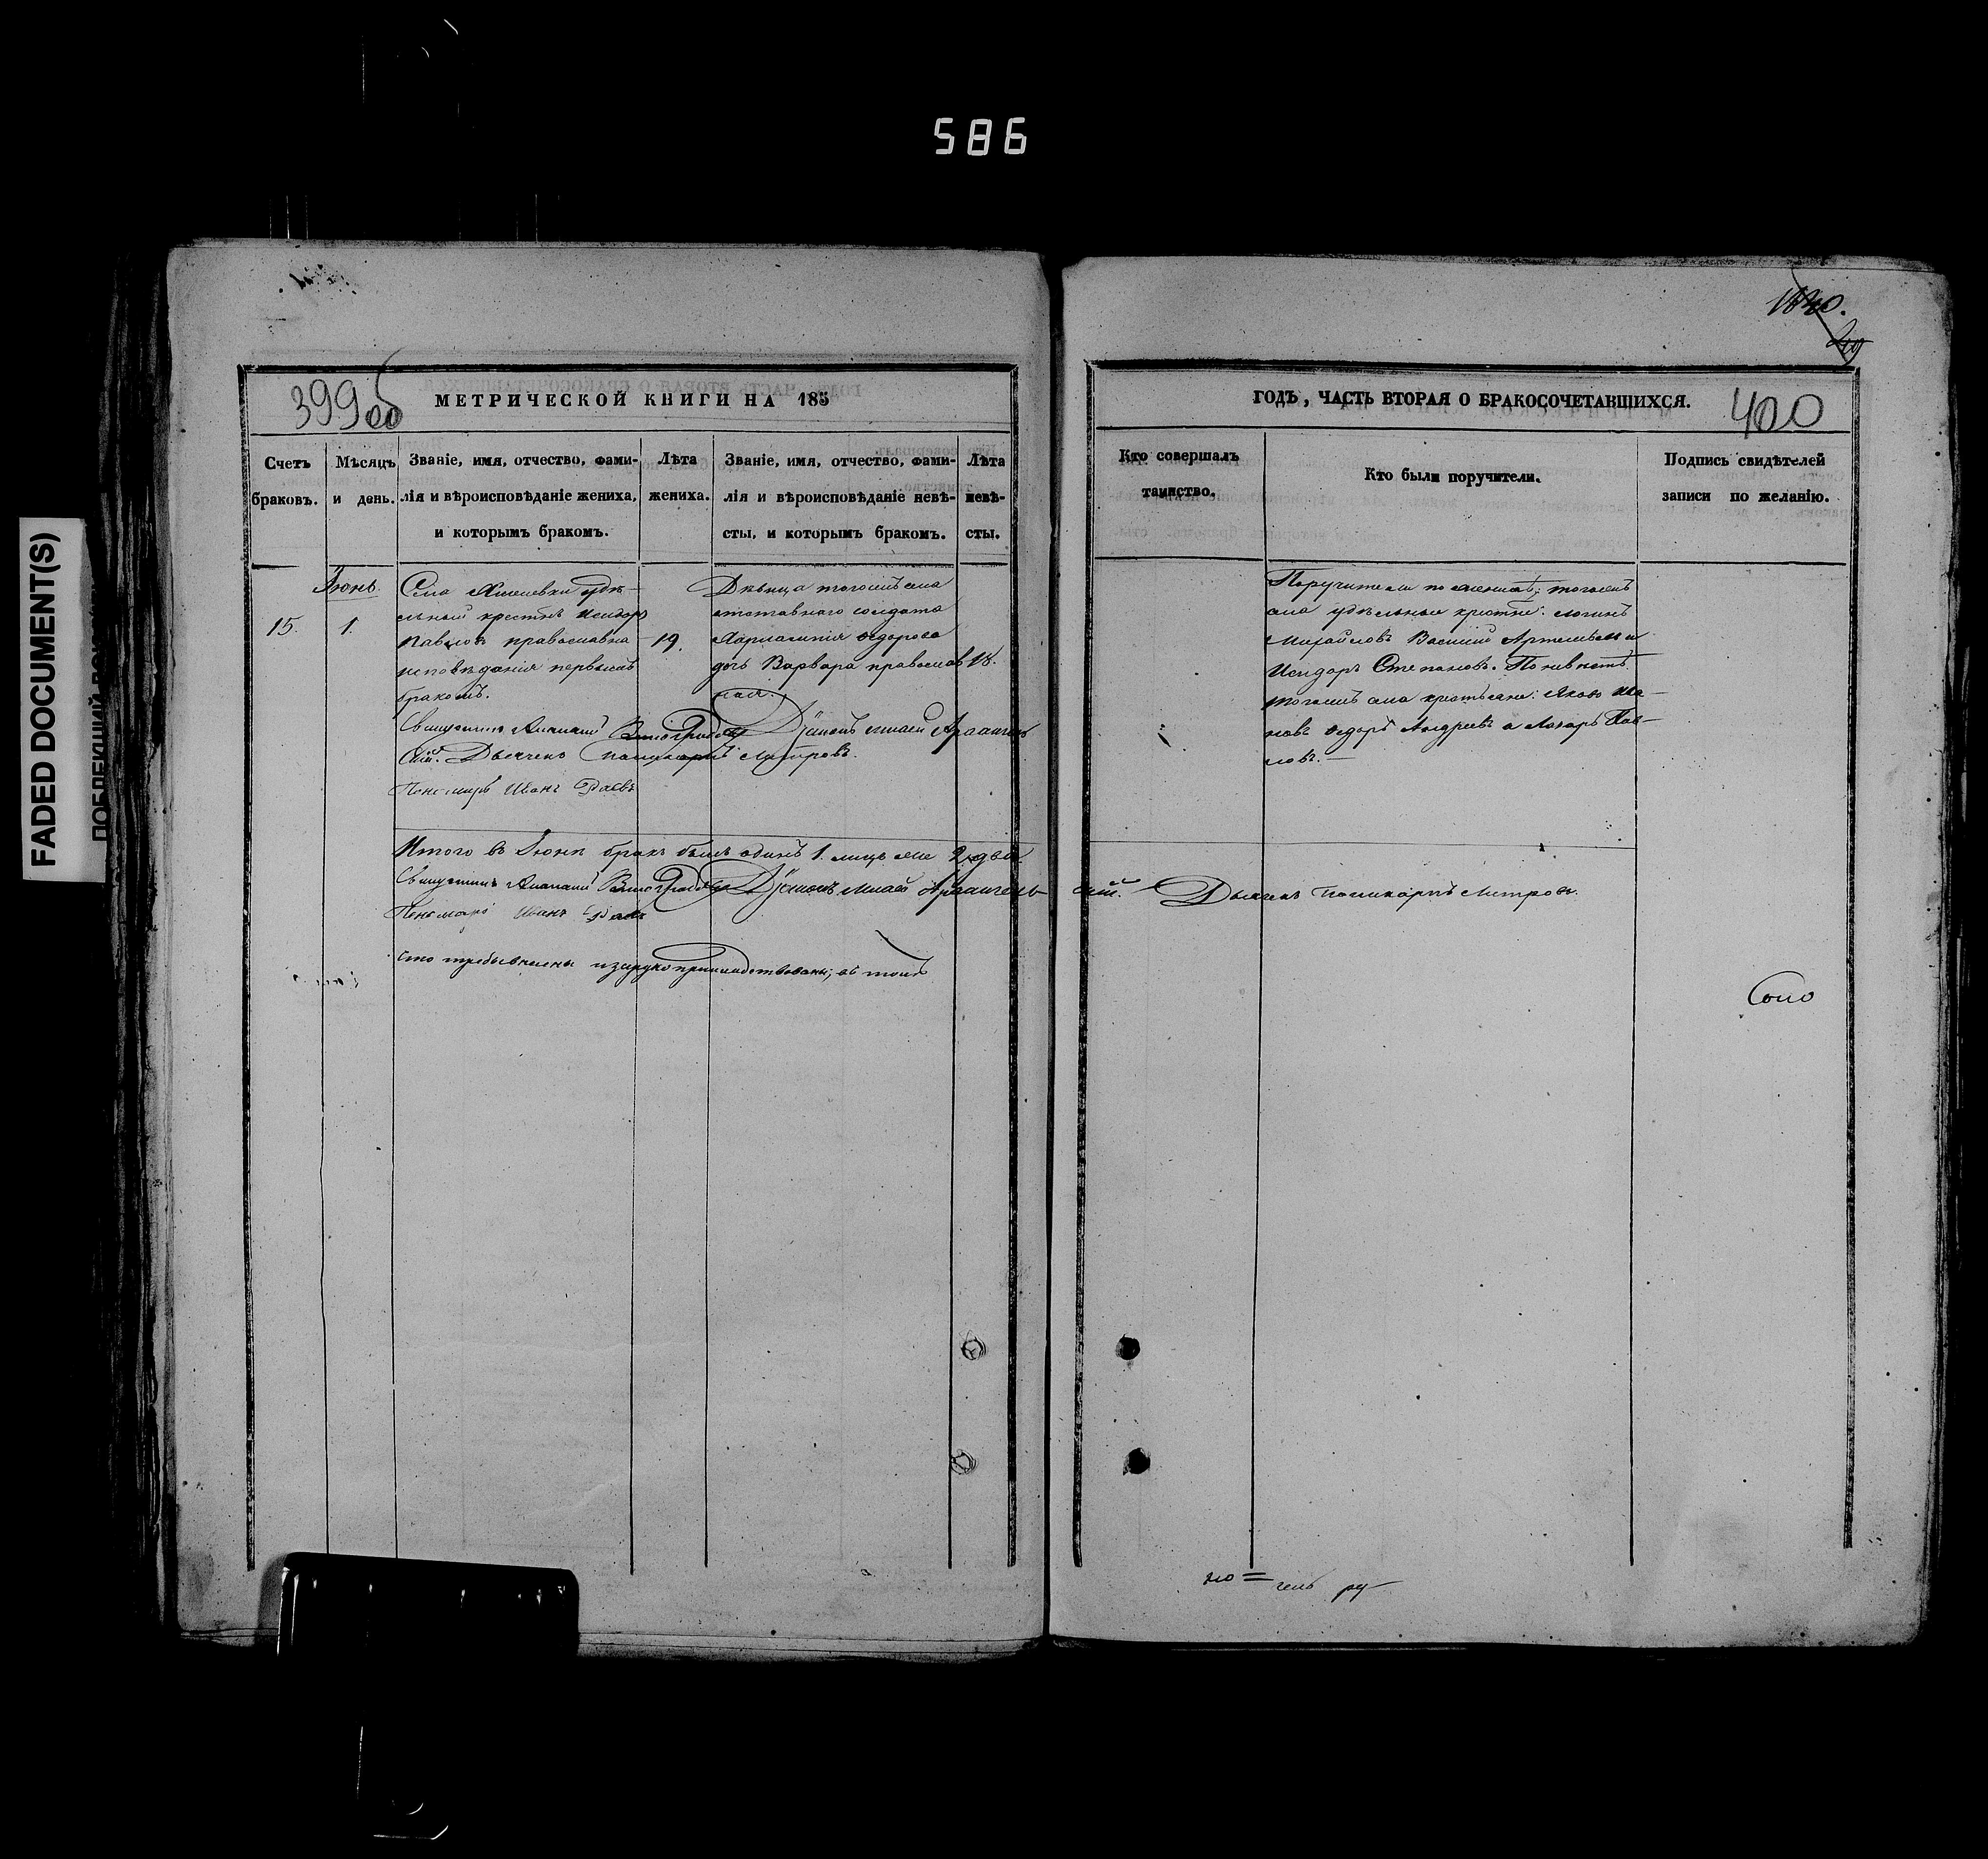 586
FADED DOCUMENT(S)
399об
МЕТРИЧЕСКОЙ КНИГИ НА 185
Счетъ браковъ.
Мѣсяцъ и день.
Званіе, имя, отчество, фами-
лія и вѣроисповѣданіе жениха,
и которымъ бракомъ.
Лѣта жениха.
Званіе, имя, отчество, фами-
лія и вѣроисповѣданіе невѣ-
сты, и которымъ бракомъ.
Лѣта невѣ-
сты.
Іюнь.
15.
1.
Села удѣ-
льный крестнъ Исидоръ
Павловъ православна
исповѣданія первымъ
бракомъ.
19.
Дѣвица тогожъ села
отставнаго солдата
Ѳедорова
дочь Варвара православ
ная.
18.
Священникъ Виноградовъ Діаконъ Архангель
скій. Дьячекъ Поликарпъ Митровъ.
Пономарь Иванъ
Итого въ Іюнѣ бракъ былъ одинъ 1. лицъ 2 два
Священникъ Виноградовъ Діаконъ Архангель-
Пономарь Иванъ
1840.
ГОДЪ, ЧАСТЬ ВТОРАЯ О БРАКОСОЧЕТАВШИХСЯ.
400
Кто совершалъ
таинство.
Кто были поручители.
Подпись свидѣтелей
записи по желанію.
Поручители по женихѣ; тогожъ
села удѣльные крестне: Логинъ
Михайловъ Василій Артемьевъ и
Исидоръ Степановъ. По невѣстѣ
тогожъ села крестьяне: Яковъ Ива-
новъ Ѳедоръ Андреевъ и Лазарь Пав-
ловъ.
скій. Дьячекъ Поликарпъ Митровъ.